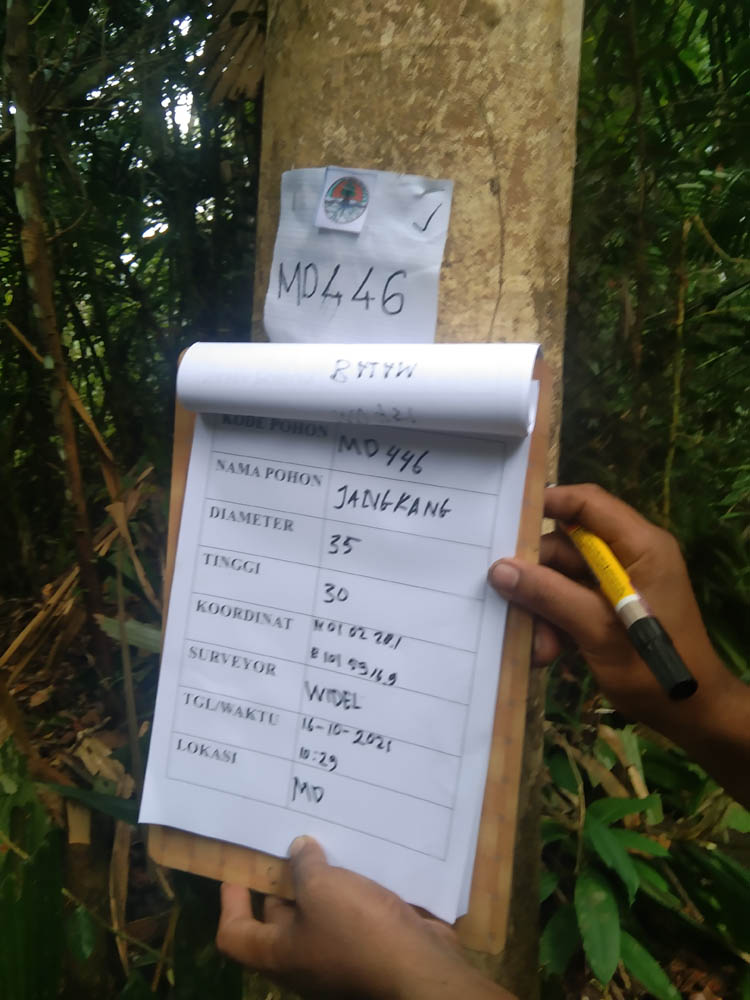 MD446
KODE POHON MD 446
NAMA POHON JANGKANG
DIAMETER 35
TINGGI 30
KOORDINAT N 01 02 28,1
E 101 55 16,9
SURVEYOR WIDEL
TGL/WAKTU 16-10-2021
10:29
LOKASI MD